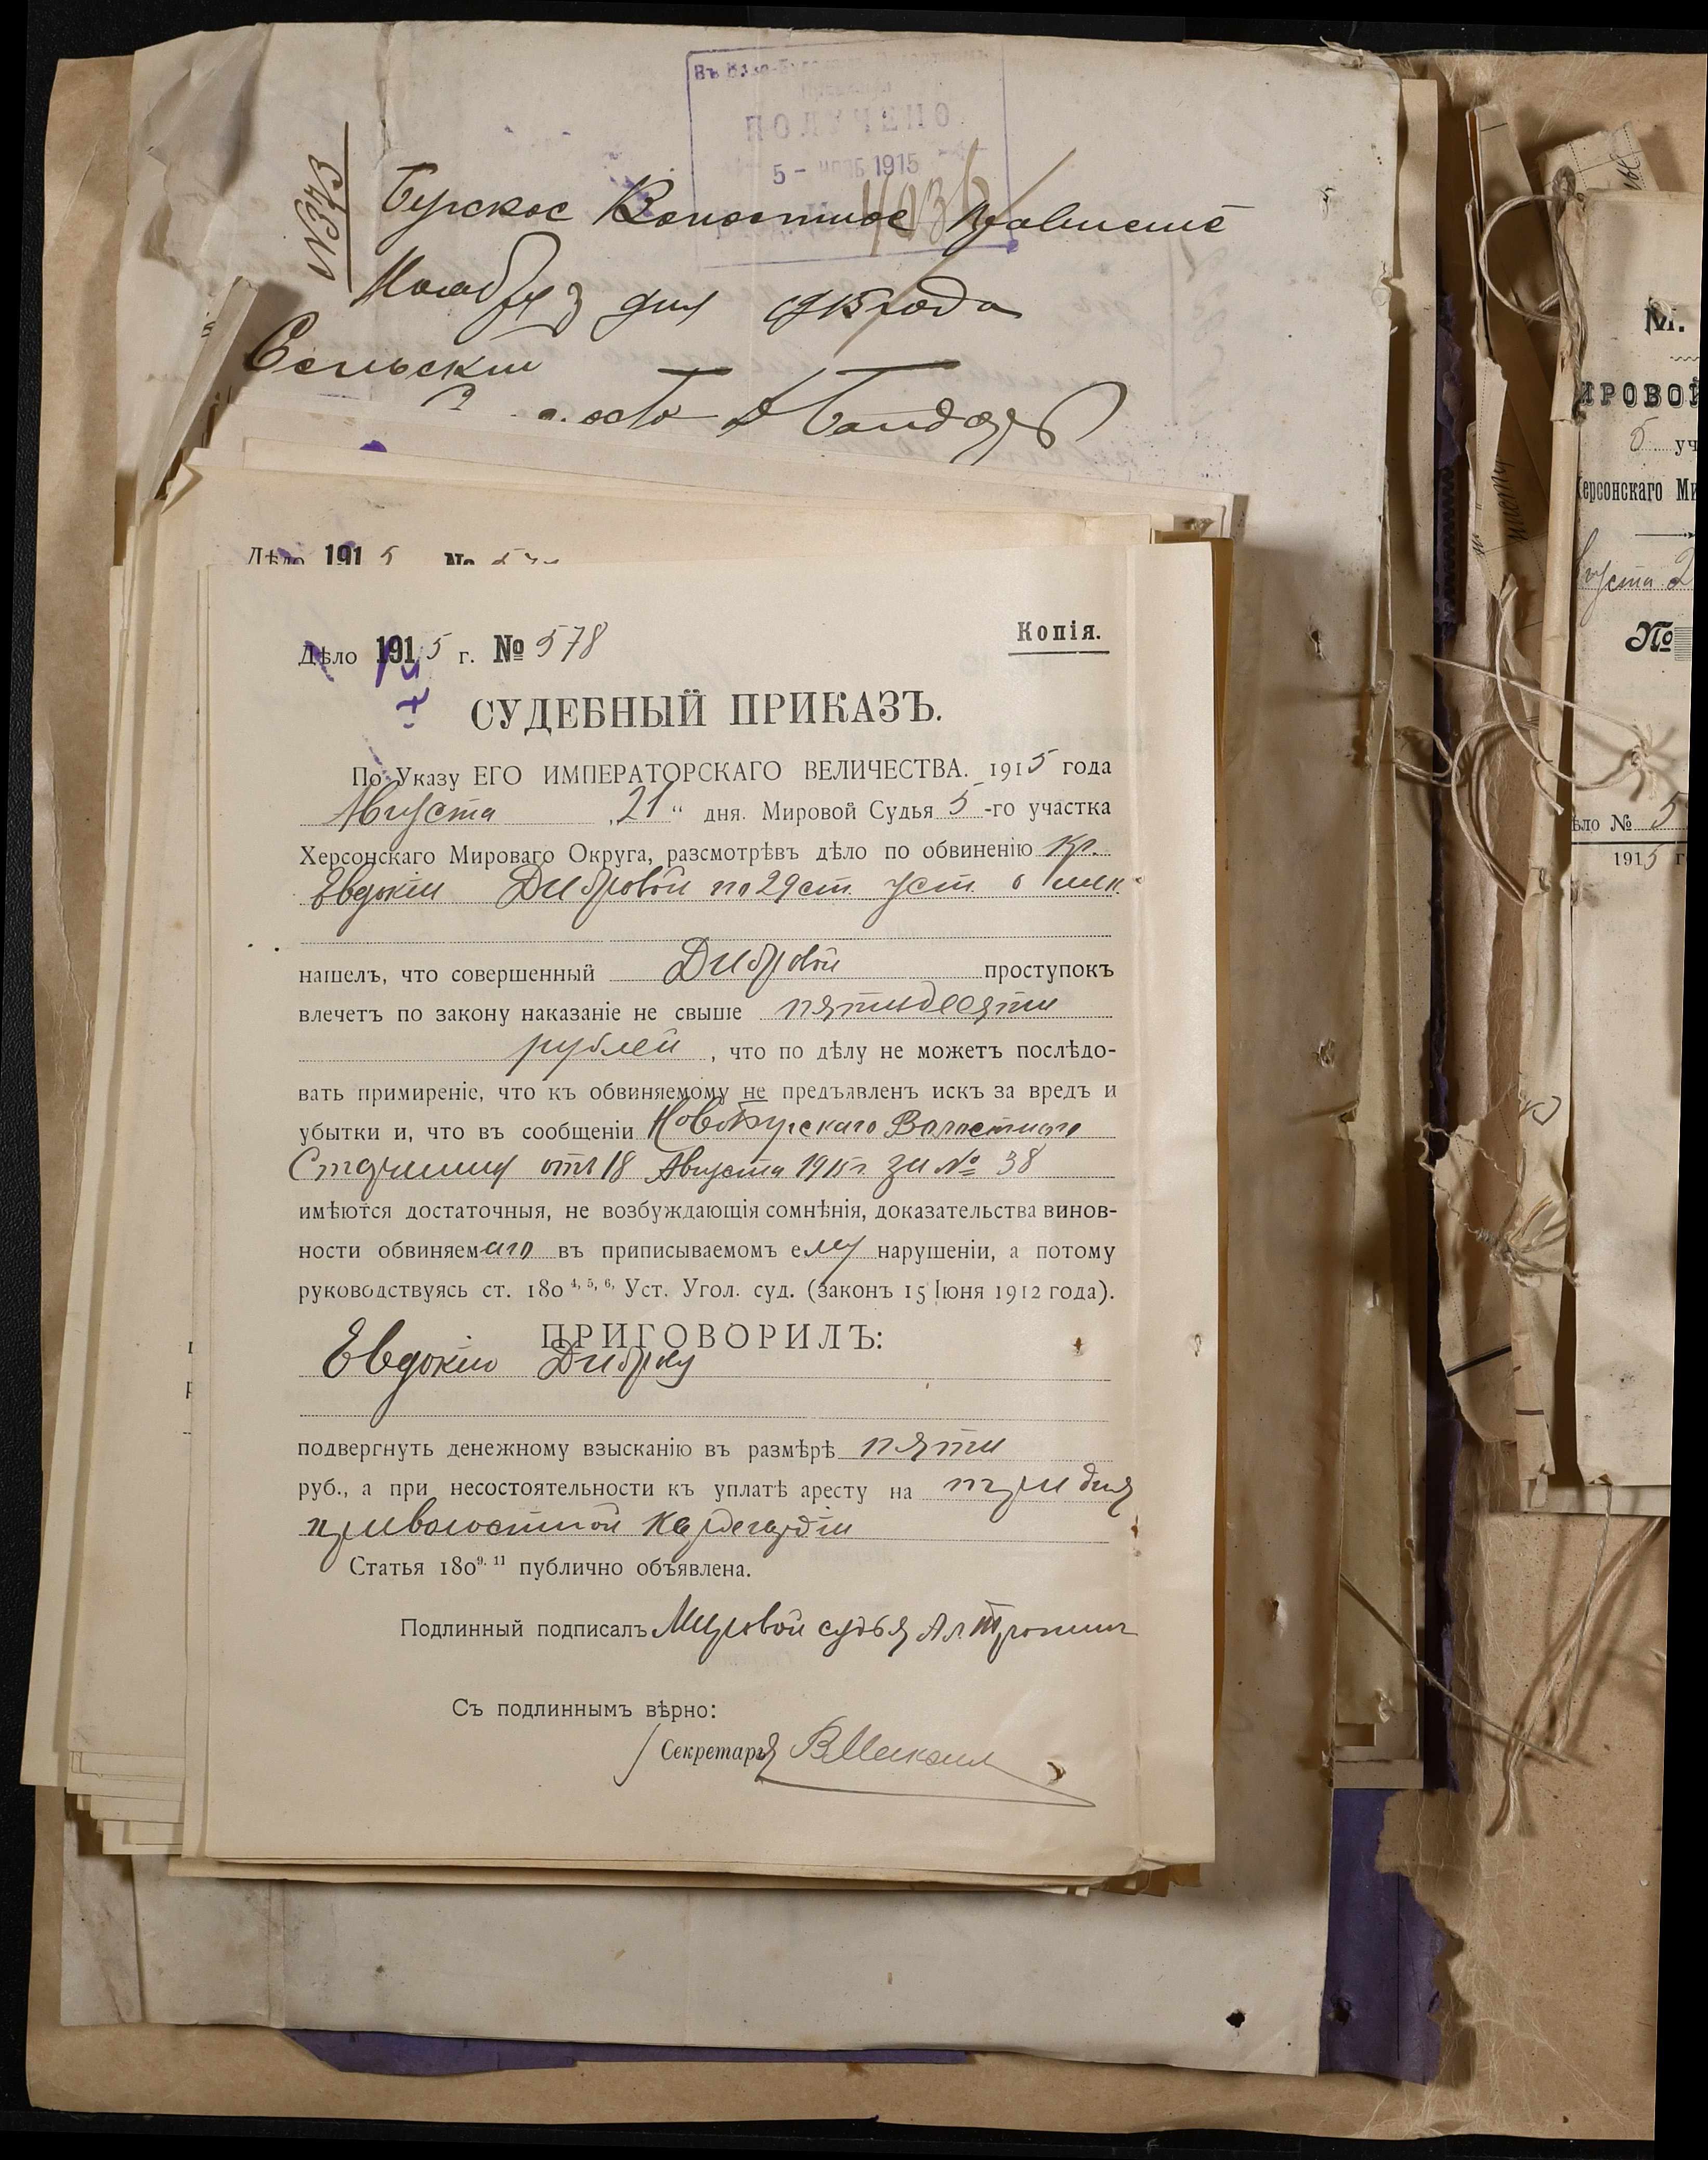 ПОЛУЧЕНО
5 - НОЯБ 1915
№ 373
Бургское Волостное Правление
Ноября 3 дня 1915 года
Сельскій
Дѣло 1915 №
Дѣло 1915 г. № 578
Копія.
СУДЕБНЫЙ ПРИКАЗЪ.
По Указу ЕГО ИМПЕРАТОРСКАГО ВЕЛИЧЕСТВА. 1915 года
Августа „21“ дня. Мировой Судья 5-го участка
Херсонскаго Мироваго Округа, разсмотрѣвъ дѣло по обвиненію кр.
Евдокіи Дибровой по 29 ст. уст. о
нашелъ, что совершенный Дибровой проступокъ
влечетъ по закону наказаніе не свыше пятидесяти
рублей, что по дѣлу не можетъ послѣдо-
вать примиреніе, что къ обвиняемому не предъявленъ искъ за вредъ и
убытки и, что въ сообщеніи Новобургскаго Волостного
Старшины отъ 18 Августа 1915 г. за № 38
имѣются достаточныя, не возбуждающія сомнѣнія, доказательства винов-
ности обвиняемаго въ приписываемомъ ему нарушеніи, а потому
руководствуясь ст. 180 4, 5, 6, Уст. Угол. суд. (законъ 15 Іюня 1912 года).
ПРИГОВОРИЛЪ:
Евдокію Диброву
подвергнуть денежному взысканію въ размѣрѣ пяти
руб., а при несостоятельности къ уплатѣ аресту на три дня
при волостной Кардегардіи
Статья 180 9. 11 публично объявлена.
Подлинный подписалъ Мировой судья Ал.
Съ подлиннымъ вѣрно:
Секретарь
М.
ИРОВОЙ
5 уч
Херсонскаго Ми
Августа 2
№
ѣло № 5
1915 г